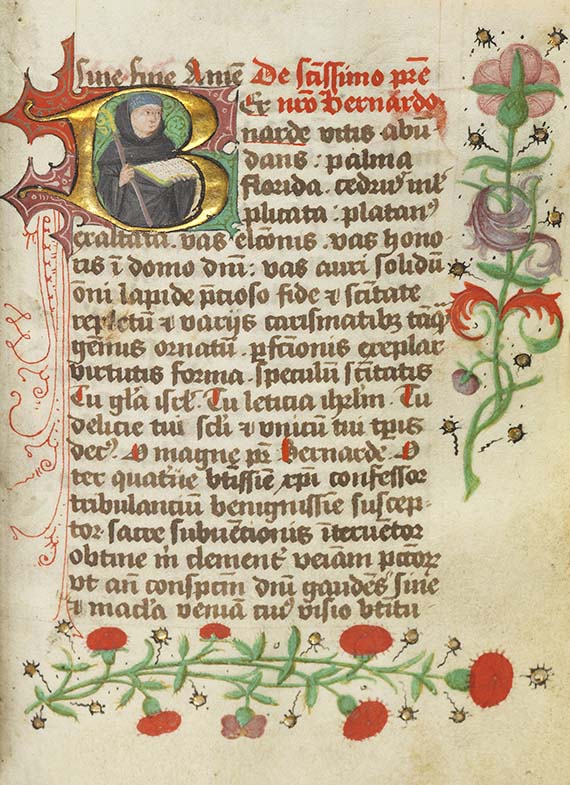 sine fine Amē De sc̄issimo pr̄e
Ex nr̄o Bernardo
Bernarde vitis abū
dans : palma
florida . cedrus ml̄
plicata : platanꝰ
exaltata . vas elc̄onis . vas hono
ris ī domo dn̄i : vas auri solidū
om̄i lapide p̄cioso fide ⁊ sc̄itate
repletū ⁊ varijs carismatibꝫ tāqꝫ
gēmis ornatū . ꝑfc̄ionis exēplar
virtutis forma . speculū sc̄itatis
Tu gl̄a isrl̄ . Tu leticia ihrlm̄ . Tu
delicie tui scl̄i ⁊ vnicū tui tp̄ris
decꝰ . O magne pr̄ Bernarde . O
ter quaterqꝫ bt̄issīe xp̄i confessor
tribulanciū benignissīe suscep
tor . sacre subuēcionis
obtine in clement̄ veīam pc̄torꝝ
vt an̄ conspc̄m dn̄i gaudēs sine
⁊ macl̄a veniā tuꝰ visio bt̄itu